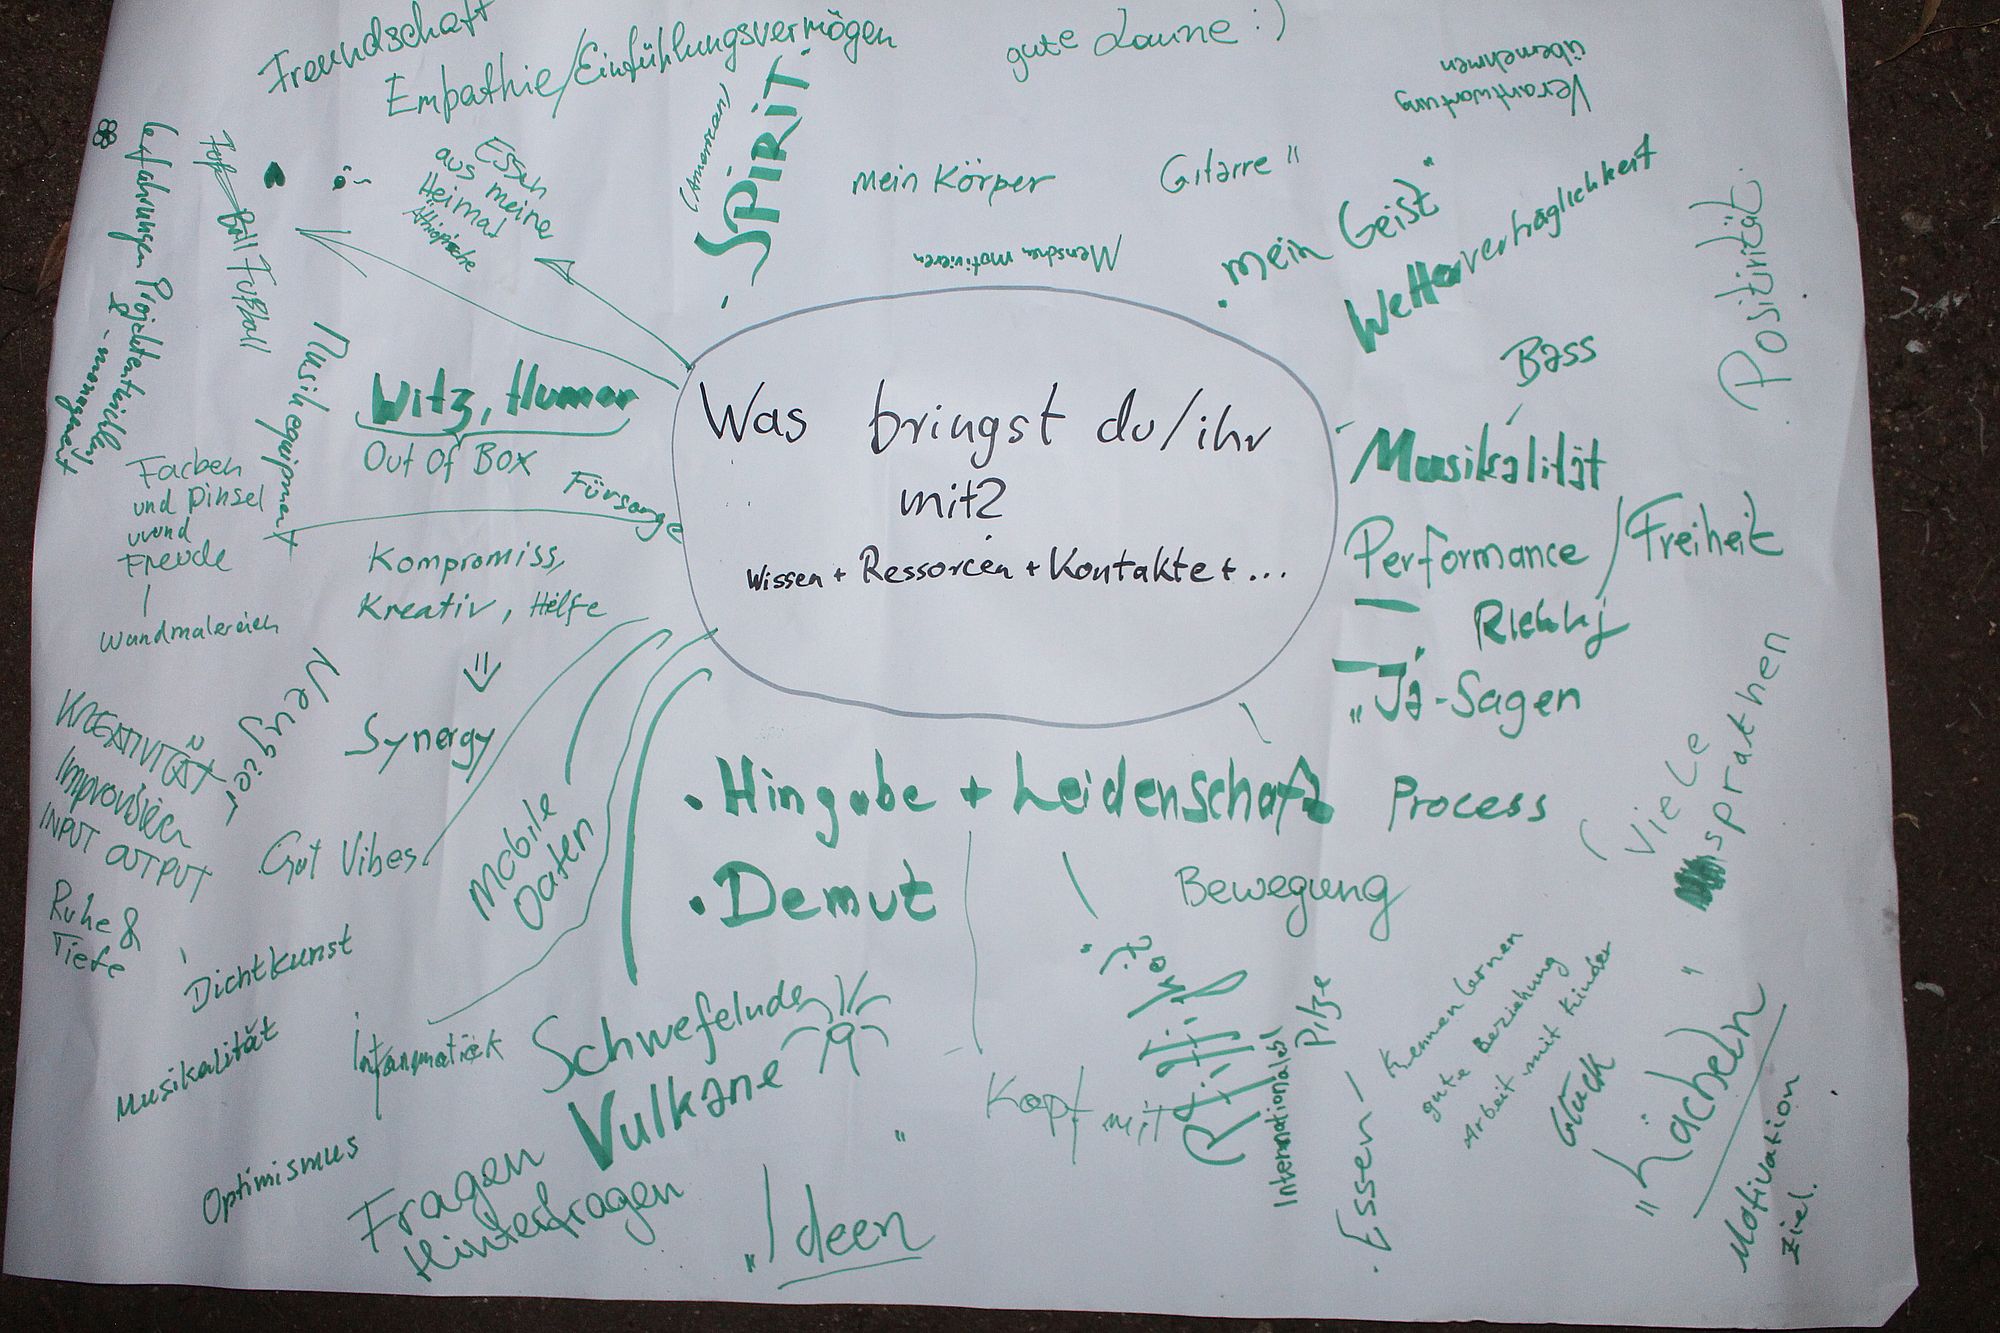 Freundschaft
Empathie/Einfühlungsvermögen
gute Laune :)
Verantwortung
übernehmen
Essen
aus meine
Heimat
Äthiopische
SPIRIT
mein Körper
Gitarre "
Menschen motivieren
mein Geist"
Wetterverträglichkeit
Positivität.
Erfahrungen
-management
Ball Fußball
Musikequipment
Witz, Humor
Out Of Box
Fürsorge
Was bringst du/ihr
mit?
Wissen + Ressorcen + Kontakte + ...
Bass
Musikalität
Performance / Freiheit
"Ja"-Sagen
Farben
und Pinsel
uund
Freude
Wandmalereien
Kompromiss,
Kreativ, Hilfe
Synergy
Neugier
KREATIVITÄT
INPUT OUTPUT
Ruhe &
Tiefe
Gut Vibes
Mobile
Daten
• Hingabe + Leidenschaft
• Demut
Process
Bewegung
Viele
sprathen
Dichtkunst
Musikalität
Optimismus
Schwefelude
Vulkane
Fragen
Hinterfragen
"Ideen"
Kopf mit
Internationales!
Pilze
Essen
Kennen lernen
gute Beziehung
Arbeit mit Kinder
Glück
"Lächeln"
Motivation
Ziel.